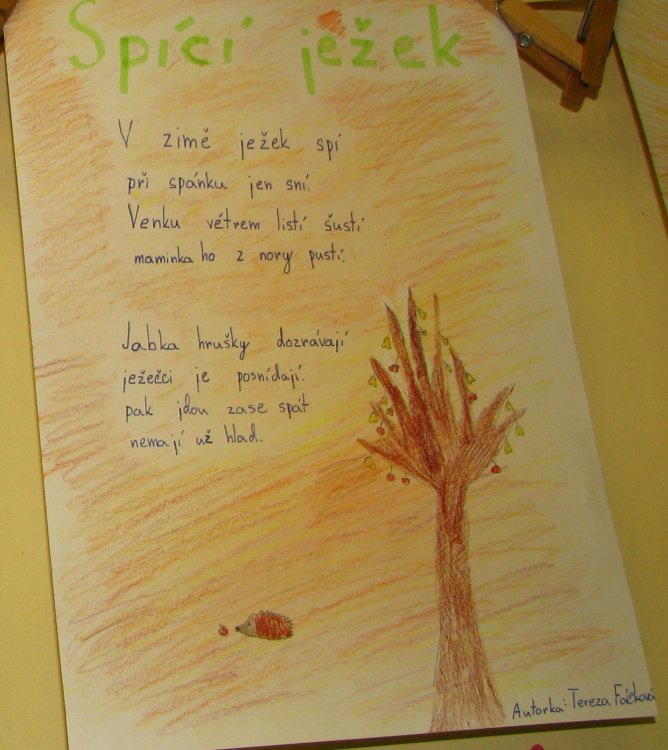 Spící ježek
V zimě ježek spí
při spánku jen sní.
Venku větrem listí šustí
maminka ho z nory pustí.
Jabka hrušky dozrávají
ježečci je posnídají.
pak jdou zase spát
nemají už hlad.
Autorka: Tereza Fáčková